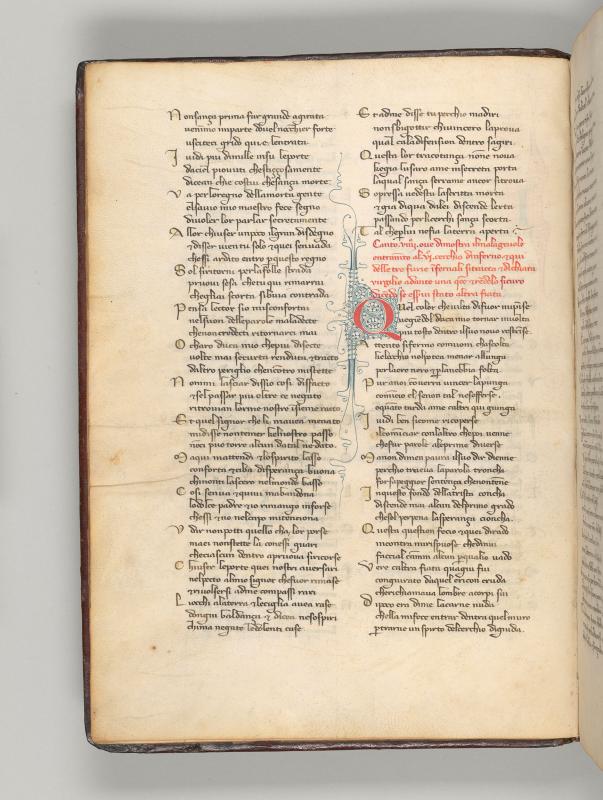 Non sança prima far grande agirata
venimo imparte dovel nacchier forte
usciteci gridò qui e lentrata
I vidi piu dimille insu leporte
daciel piovuti che stiççosamente
dicean chie costui che sança morte
Va perloregno dellamorta gente
elsavio mio maestro fece segno
divoler lor parlar secretamente
Allor chiuser unpoco ilgran disdegno
& disser vien tu solo & quei senvada
che si ardito entro per questo regno
Sol si ritorni perlafolle strada
pruovi se sa che tu qui rimarrai
che gliai scorta si buia contrada
Pensa lector sio misconfortai
nelsuon delle parole maladecte
che non credetti ritornarci mai
O charo duca mio che piu di secte
volte mai securta renduta & tracto
daltro periglio chencontro mistette
Non mi lasciar dissio cosi disfacto
& sel passar piu oltre ce negato
ritroviam lorme nostre insieme racto
Et quel signor che li mavea menato
mi disse non temer chelnostro passo
non ci puo torre alcun datal ne dato
Ma qui mattendi & lospirito lasso
conforta & ciba disperança buona
chi non ti lascero nelmondo basso
Cosi senva & quivi mabandona
lo dolce padre & io rimango inforse
che si & no nelcapo mi tenciona
Udir non potti quello cha lor porse
ma ei non stette la con essi guari
che ciascun dentro apruova si ricorse
Chiuser leporte quei nostri aversari
nelpecto almio signor che fuor rimase
& rivolsersi adme con passi rari
Li occhi alaterra & le ciglia avea rase
dongni baldança & dicea nesospiri
chi ma negate le dolenti case
Et adme disse tu perchio madiri
non sbigottir chi vincero la prova
qual caladifension dentro saggiri
Questa lor tracotança none nova
che gia lusaro ame insecreta porta
laqual sança serrame ancor sitrova
Sopressa vedestu lascritta morta
& gia diqua dalei discende lerta
passando per li cerchi sança scorta
Tal che per lui nefia la terra aperta
Canto viiii, ove dimostra
entramento al vi cerchio dinferno, & qui
delle tre furie infernali si tracta & dichiara
virgilio adante una & redelo sicuro
dicendo se essere stato altra fiata
Quel color che vilta di fuor mi pinse
vegiendol duca mio tornar involta
piu tosto dentro ilsuo novo restrinse
Attento si fermo comuom chascolta
che locchio nol potea menar allunga
perlaere nero & perlanebbia folta
Pur anoi converra vincer la punga
comincio el se non tal ne sofferse
o quanto tarda ame chaltri qui giunga
I vidi ben sicome ricoperse
lo cominciar con laltro che poi venne
che fur parole ale prime diverse
Ma non dimen paura ilsuo dir dienne
perchio traeva laparola troncha
forsa peggior sentença che non tenne
In questo fondo dellatrista concha
discende mai alcun delprimo grado
che sol per pena la sperança cioncha
Questa question feci & quei di rado
incontra mi rispuose che dinui
faccial camin alcun per qualio vado
Vere caltra fiata quagiu fui
congiurato daquel ericon cruda
che richiamava lombre acorpi sui
Di poco era dime lacarne nuda
chella mi fece entrar dentra quel muro
per trarne un spirto del cerchio digiuda